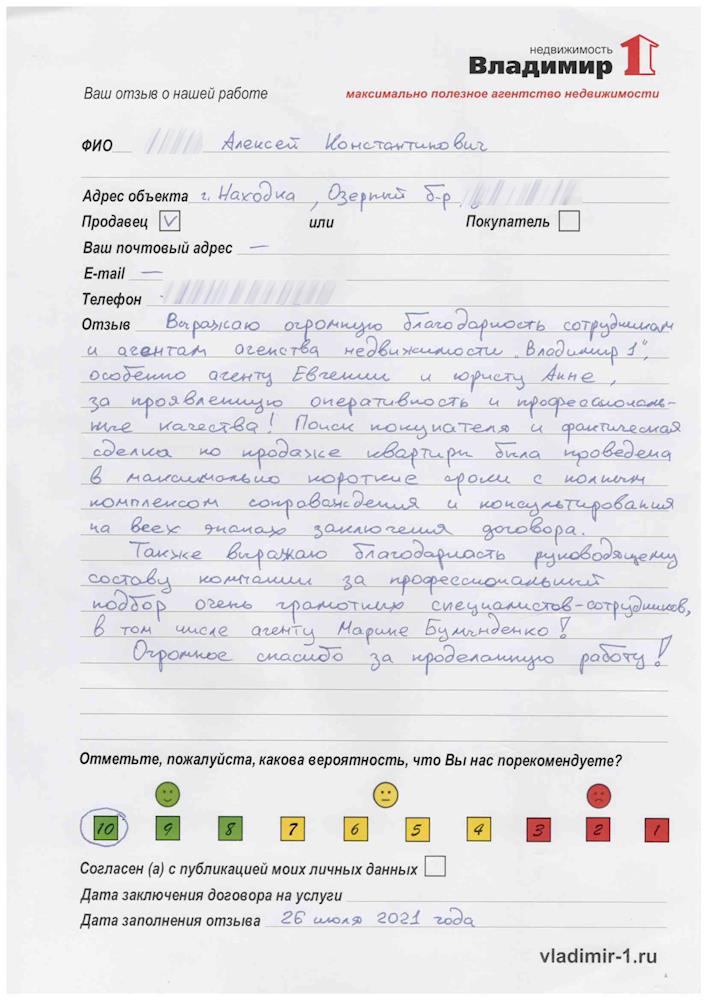 недвижимость
Владимир 1
Ваш отзыв о нашей работе
максимально полезное агентство недвижимости
ФИО Алексей Константинович
Адрес объекта г. Находка, Озерный б-р
Продавец или Покупатель
Ваш почтовый адрес —
E-mail —
Телефон
Отзыв Выражаю огромную благодарность сотрудникам
и агентам агенства недвижимости „Владимир 1",
особенно агенту Евгении и юристу Анне,
за проявленную оперативность и профессиональ-
ные качества! Поиск покупателя и фактическая
сделка по продаже квартиры была проведена
в максимально короткие сроки с полным
комплексом соправаждения и консультирования
на всех этапах заключения договора.
Также выражаю благодарность руководящему
составу компании за профессиональный
подбор очень грамотных специалистов-сотрудников,
в том числе агенту Марине!
Огромное спасибо за проделанную работу!
Отметьте, пожалуйста, какова вероятность, что Вы нас порекомендуете?
10 9 8 7 6 5 4 3 2 1
Согласен (а) с публикацией моих личных данных
Дата заключения договора на услуги
Дата заполнения отзыва 26 июля 2021 года
vladimir-1.ru